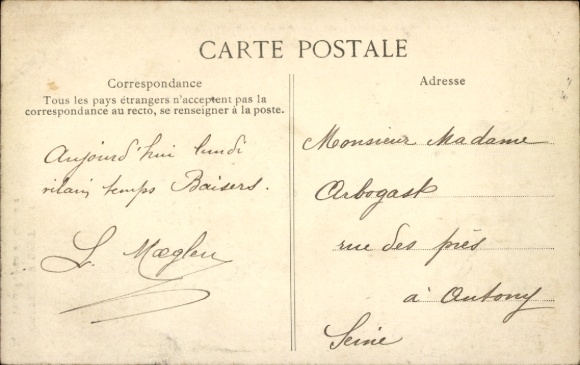 CARTE POSTALE
Correspondance
Tous les pays étrangers n'acceptent pas la
correspondance au recto, se renseigner à la poste.
Aujourd'hui lundi
vilain temps Baisers.
L. Mœglen
Adresse
Monsieur Madame
Arbogast
rue des prés
à Antony
Seine